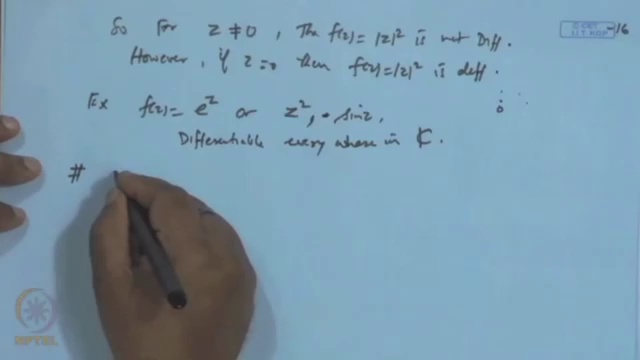 So For z ≠ 0, The f(z) = |z|² is not Diff.
However, if z = 0 Then f(z) = |z|² is diff.
Ex f(z) = e^z or z², sin z,
Differentiable every where in ℂ.
#
NPTEL